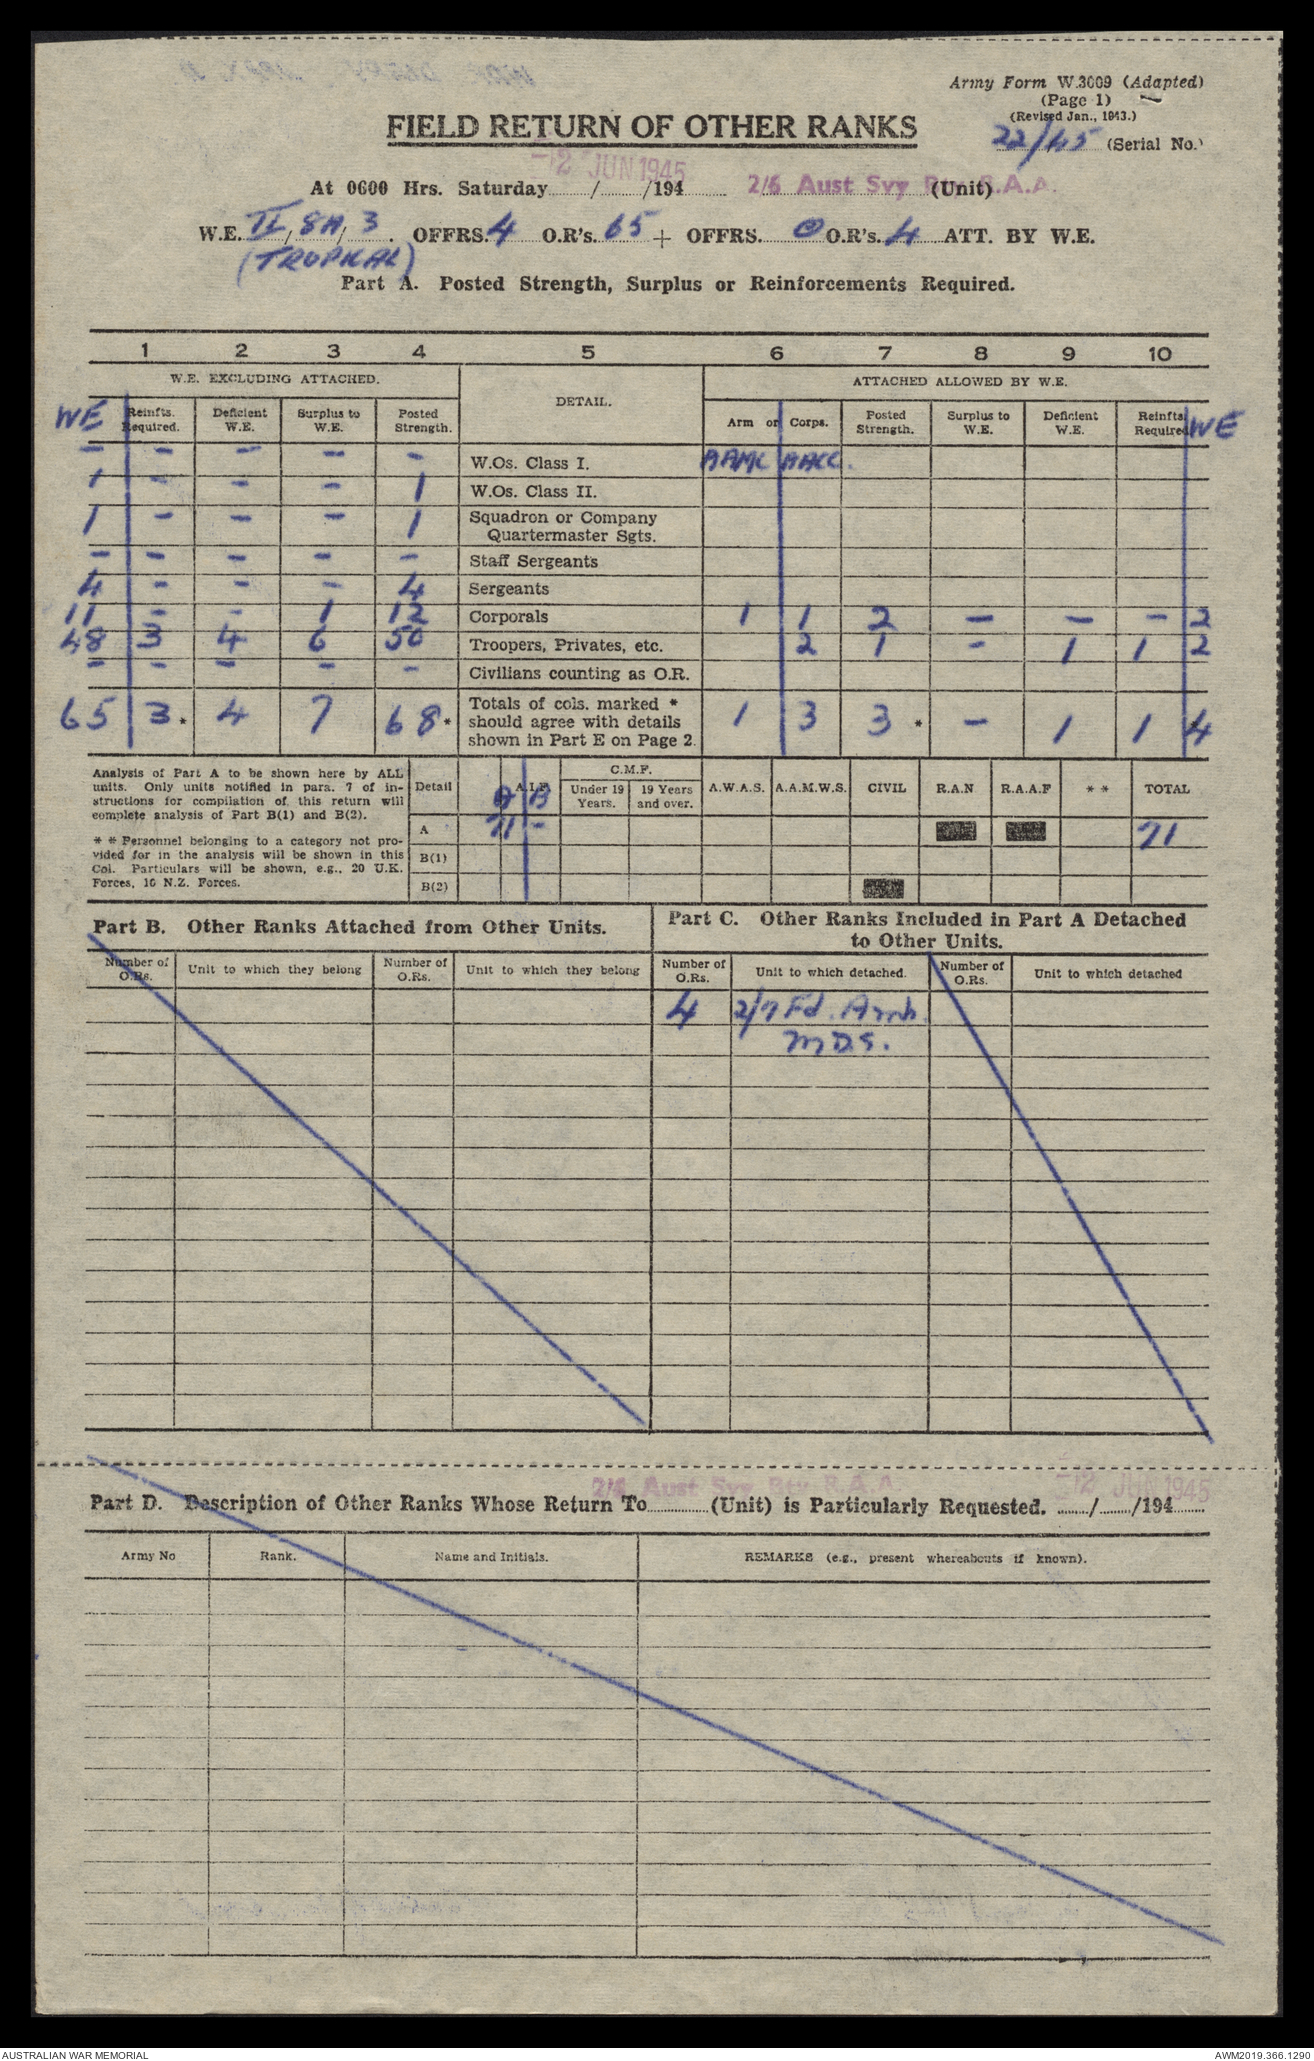 Army Form W.3009 (Adapted)
(Page 1)
(Revised Jan., 1943.)
22/45 (Serial No.)
FIELD RETURN OF OTHER RANKS
-2 JUN 1945
At 0600 Hrs. Saturday / /194 2/6 Aust Svy Bty R.A.A. (Unit)
W.E. II / 8A / 3 . OFFRS. 4 O.R's. 65 + OFFRS. 0 O.R's. 4 ATT. BY W.E.
(TROPICAL)
Part A. Posted Strength, Surplus or Reinforcements Required.
1 2 3 4 5 6 7 8 9 10
W.E. EXCLUDING ATTACHED. DETAIL. ATTACHED ALLOWED BY W.E.
WE Reinfts. Required. Deficient W.E. Surplus to W.E. Posted Strength. Arm or Corps. Posted Strength. Surplus to W.E. Deficient W.E. Reinfts. Required WE
- - - - - W.Os. Class I. AAMC AACC.
1 - - - 1 W.Os. Class II.
1 - - - 1 Squadron or Company Quartermaster Sgts.
- - - - - Staff Sergeants
4 - - - 4 Sergeants
11 - - 1 12 Corporals 1 1 2 - - - 2
48 3 4 6 50 Troopers, Privates, etc. 2 1 - 1 1 2
- - - - - Civilians counting as O.R.
65 3 * 4 7 68 * Totals of cols. marked * should agree with details shown in Part E on Page 2. 1 3 3 * - 1 1 4
Analysis of Part A to be shown here by ALL
units. Only units notified in para. 7 of in-
structions for compilation of this return will
complete analysis of Part B(1) and B(2).
* * Personnel belonging to a category not pro-
vided for in the analysis will be shown in this
Col. Particulars will be shown, e.g., 20 U.K.
Forces, 10 N.Z. Forces.
Detail A.I.F. A B C.M.F. Under 19 Years. 19 Years and over. A.W.A.S. A.A.M.W.S. CIVIL R.A.N R.A.A.F * * TOTAL
A 71 - 71
B(1)
B(2)
Part B. Other Ranks Attached from Other Units.
Part C. Other Ranks Included in Part A Detached
to Other Units.
Number of O.Rs. Unit to which they belong Number of O.Rs. Unit to which they belong Number of O.Rs. Unit to which detached. Number of O.Rs. Unit to which detached
4 2/7 Fd. Amb.
M.D.S.
2/6 Aust Svy Bty R.A.A -2 JUN 1945
Part D. Description of Other Ranks Whose Return To (Unit) is Particularly Requested. / /194
Army No Rank. Name and Initials. REMARKS (e.g., present whereabouts if known).
AUSTRALIAN WAR MEMORIAL AWM2019.366.1290